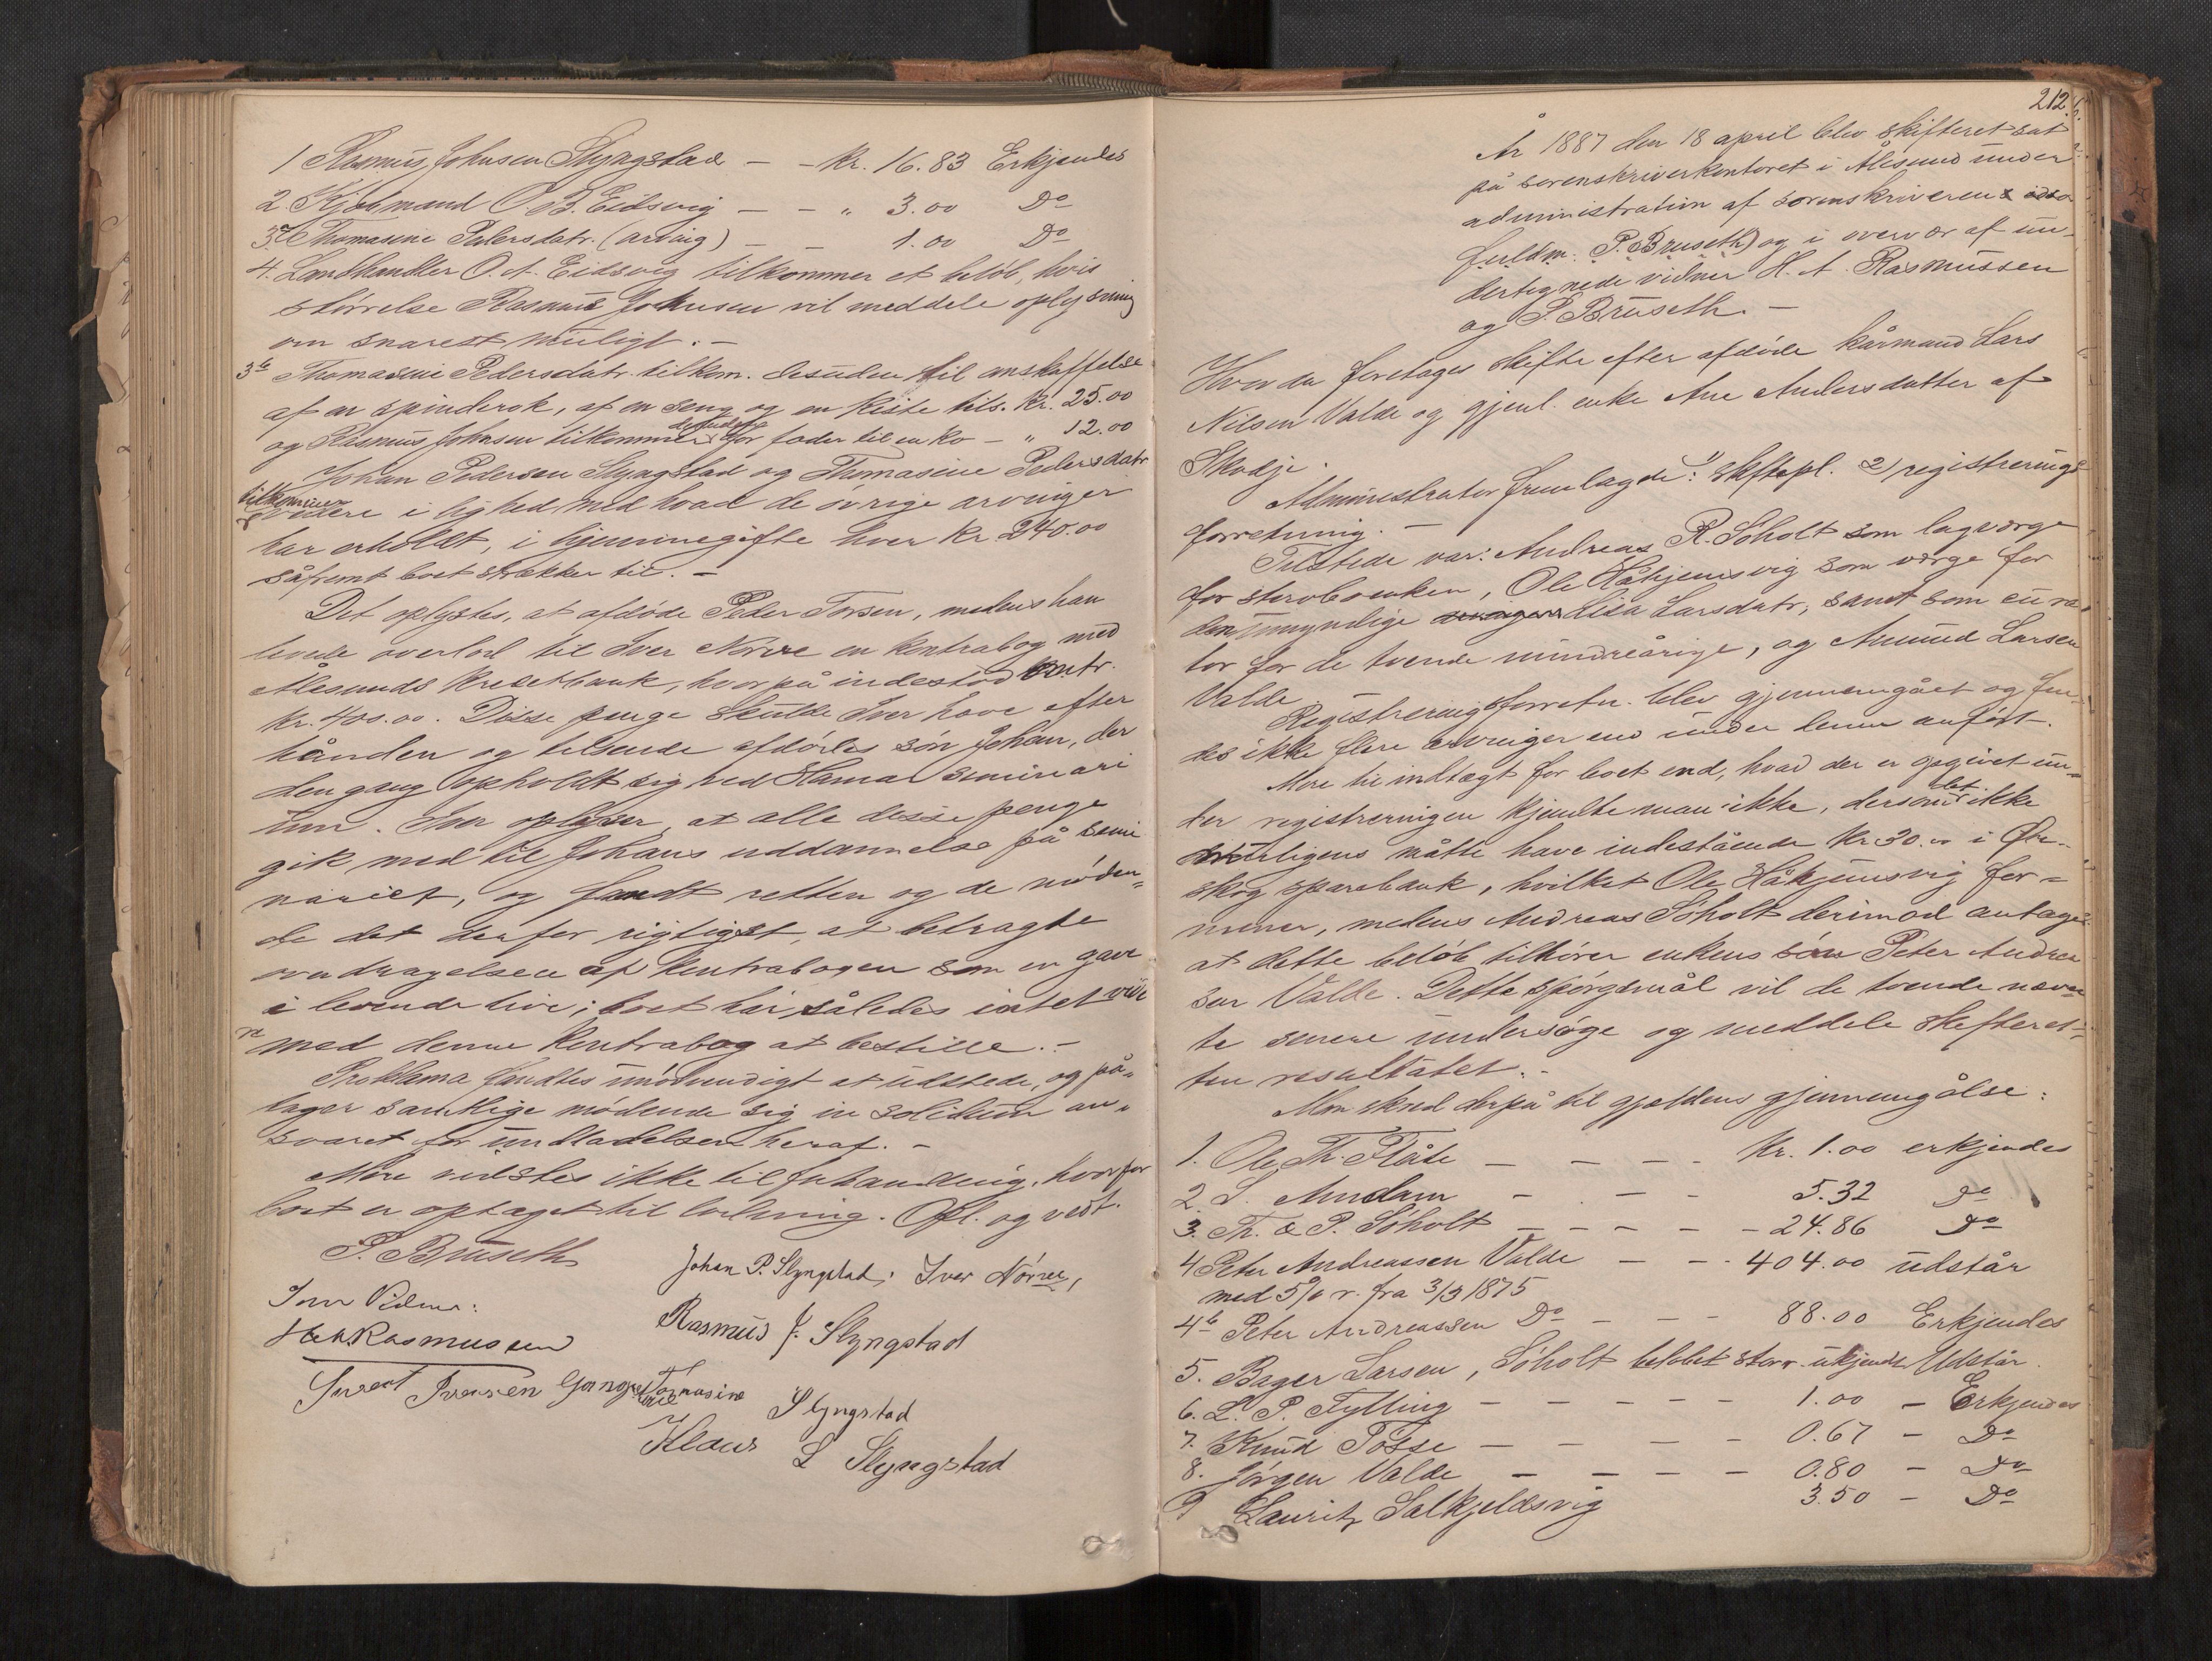 1 Rasmus Johnsen Slyngstad — - Kr. 16.83 Erkjendes
2. Kjøbmand O. B. Eidsvig — - " 3.00 Do
3.a Thomasine Pedersdatr. (arving) — - 1.00 Do
4. Landhandler O. A. Eidsvig tilkommer et beløb, hvis
størrelse Rasmus Johnsen vil meddele oplysning
om snarest muligt. -
3b Thomasine Pedersdatr. tilkom. desuden til anskaffelse
af en spinderok, af en seng og en kiste tils. Kr. 25.00
og Rasmus Johnsen tilkommer desuden for foder til en ko - " 12.00
Johan Pedersen Slyngstad og Thomasine Pedersdatr
tilkommer
videre i lighed med hvad de øvrige arvinger
har erholdt, i hjemmegifte hver Kr 240.00
såfremt boet strækker til. -
Det oplystes, at afdøde Peder Iversen, medens han
levede overlod til Iver Nørve en kontrabog med
Ålesunds Kreditbank, hvorpå indestod omtr.
Kr. 400.00. Disse penge skulde Iver have efter
hånden og tilsende afdødes søn Johan, der
dengang opholdt sig ved Hamar seminari
um. Iver oplyser, at alle disse penge
gik med til Johans uddannelse på semi
nariet, og fandt retten og de møden-
de det derfor rigtigst, at betragte
ovedragelsen af kontrabogen som en gave
i levende live; boet har således intet vide
re med denne kontrabog at bestille. -
Proklama fandtes unødvendigt at udstede, og på-
tager samtlige mødende sig in solidum an-
svaret for undladelsen heraf. -
Mere vidstes ikke til forhandling, hvorfor
boet er optaget til lodning. Opl. og vedt.
P. Bruseth
Johan P. Slyngstad; Iver Nörve,
Som Vidner:
Rasmus J. Slyngstad
H.A. Rasmussen
Sivert Iversen
Tomasine
Slyngstad
Klaus L Slyngstad
212.
År 1887 den 18 april blev skifteret sat
på sorenskriverkontoret i Ålesund under
administration af sorenskriverens
fuldm. P. Bruseth) og i overvær af un-
dertegnede vidner H. A. Rasmussen
og P. Bruseth. -
Hvor da foretages skifte efter afdøde kårmand Lars
Nilsen Valde og gjenl. enke Ane Andersdatter af
Skodje.
Administrator fremlagde: 1) skiftepl. 2) registrerings
forretning. -
Tilstede var: Andreas R. Søholt som lagværge
for stervboenken, Ole Håkjemsvig som værge for
den umyndige Lisa Larsdatr, samt som cura
tor for de tvende mindreårige, og Amund Larsen
Valde
Registreringsforretn. blev gjennemgået og fan-
des ikke flere arvinger end under denne anført.
Mere til indtægt for boet end, hvad der er opgivet un-
der registreringen kjendte man ikke, dersom det ikke
muligens måtte have indestående Kr 30.00 i Ør-
skog sparebank, hvilket Ole Håkjemsvig for-
mener, medens Andreas Søholt derimod antager
at dette beløb tilhører enkens søn Peter Andrea
sen Valde. Dette spørgsmål vil de tvende nævn
te senere undersøge og meddele skifteret-
ten resultatet. -
Man skred derpå til gjældens gjennemgåelse:
1. Ole Th. Flåte — — — - Kr. 1.00 erkjendes
2. S. Amdam — — - 5.32 Do
3. Th. & P. Søholt — — — — - 24.86 Do
4 Peter Andreassen Valde — - - 404.00 udstår
med 5% r. fra 3/3 1875
4b Peter Andreassen Do — — - 88.00 Erkjendes
5. Bager Larsen, Søholt beløbet størr. ukjendt Udstår.
6. L. P. Fylling — — — — - 1.00 - Erkjendes
7. Knud Tosse — — — - 0.67 - Do
8. Jørgen Valde — — — — 0.80 - Do
9 Lauritz Salkjeldsvig 3.50 - Do